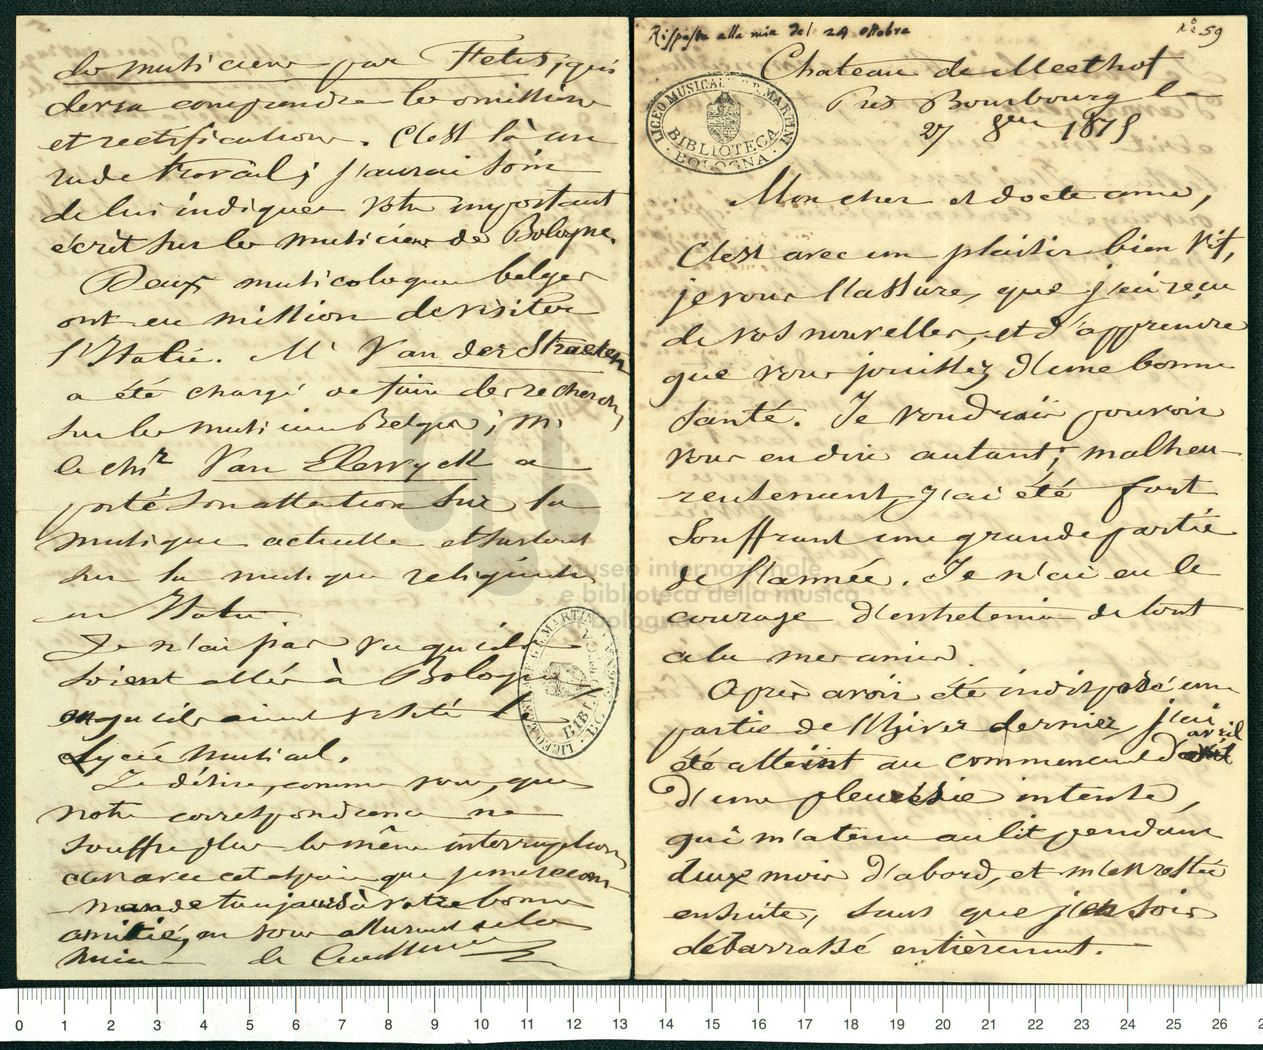 Risposta alla mia del 24 ottobre
N° 59
Chateau de Meethof
Près Bourbourg le
27 8bre 1875
LICEO MUSICALE G.B. MARTINI
BIBLIOTECA
BOLOGNA
Mon cher et docte ami,
C'est avec un plaisir bien vif,
je vous l'assure, que j'ai reçu
de vos nouvelles, et d'apprendre
que vous jouissez d'une bonne
santé. Je voudrais pouvoir
vous en dire autant; malheu-
reusement, j'ai été fort
souffrant une grande partie
de l'année. Je n'ai eu le
courage d'entretenir de tout
cela mes amis.
Après avoir été indisposé une
partie de l'hiver dernier, j'ai
été atteint au commencement d'avril
d'une pleurésie intense,
qui m'a tenu au lit pendant
deux mois d'abord, et m'est restée
ensuite, sans que j'en sois
débarrassé entièrement.
des musiciens par Fetis, qui
devra comprendre les omissions
et rectifications. C'est là un
rude travail; j'aurai soin
de lui indiquer votre important
écrit sur les musiciens de Bologne.
Deux musicologues belges
ont eu mission de visiter
l'Italie. Mr Van der Straeten
a été chargé de faire des recherches
sur les musiciens Belges; M.
le chr Van Elewyck a
porté son attention sur la
musique actuelle et surtout
sur la musique religieuse
en Italie.
Je n'ai pas vu qu'ils
soient allés à Bologne
ou qu'ils aient visité le
Lycée Musical.
Je désire, comme vous, que
notre correspondance ne
souffre plus les même interruptions
c'est avec cet espoir que je me recom-
mande toujours à votre bonne
amitié, en vous assurant de la
mienne
de Coussemaker
LICEO MUSICALE G.B. MARTINI
museo internazionale
e biblioteca della musica
di bologna
0 1 2 3 4 5 6 7 8 9 10 11 12 13 14 15 16 17 18 19 20 21 22 23 24 25 26